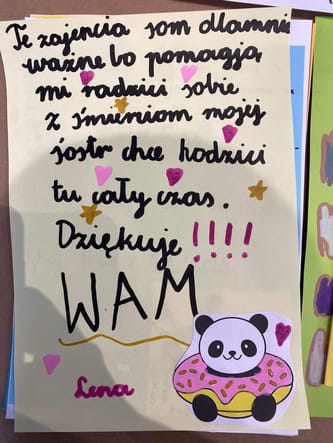 Te zajęcia som dlamnie
ważne bo pomagają
mi radzici sobie
z śmierciom mojej
jostr chce hodzici
tu cały czas.
Dziękuje !!!!
WAM
Lena